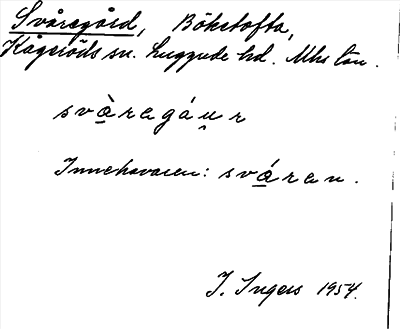 Svåregård, Bökstofta,
Kågeröds sn. Luggude hd. Mhs län.
svàragáu̯r
Innehavaren: sváran.
I. Ingers 1954.